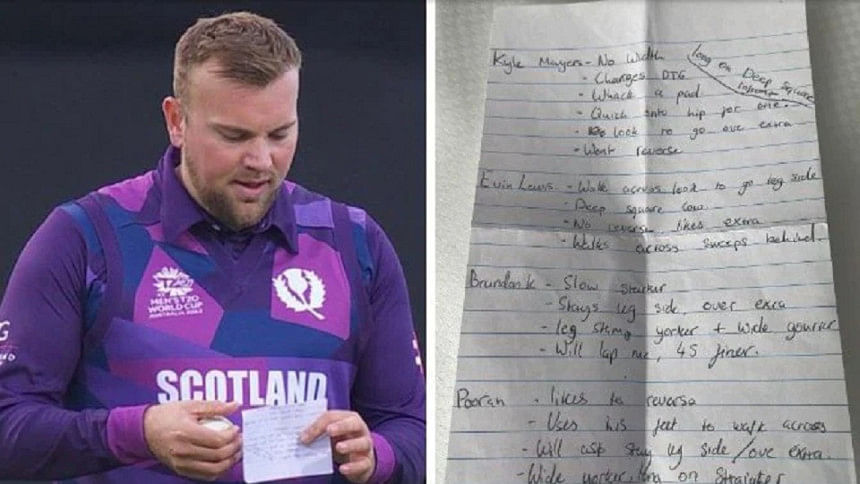 MEN'S T20
WORLD CUP
AUSTRALIA 2022
SCOTLAND
Kyle Mayers - No Width
long on Deep Square
- Changes DTG
- Whack a pad
- Quick into hip for one.
- look to go over extra
- Wont reverse
Evin Lewis - Walk across look to go leg side
- Deep square cow
- No reverse, likes extra
- Walks across sweeps behind.
Brandon k - Slow starter
- Stays leg side, over extra
- leg stump yorker + wide yorker
- Will lap me, 45 finer.
Pooran - likes to reverse
- Uses his feet to walk across
- Will stay leg side / over extra.
- Wide yorker, on Straighter